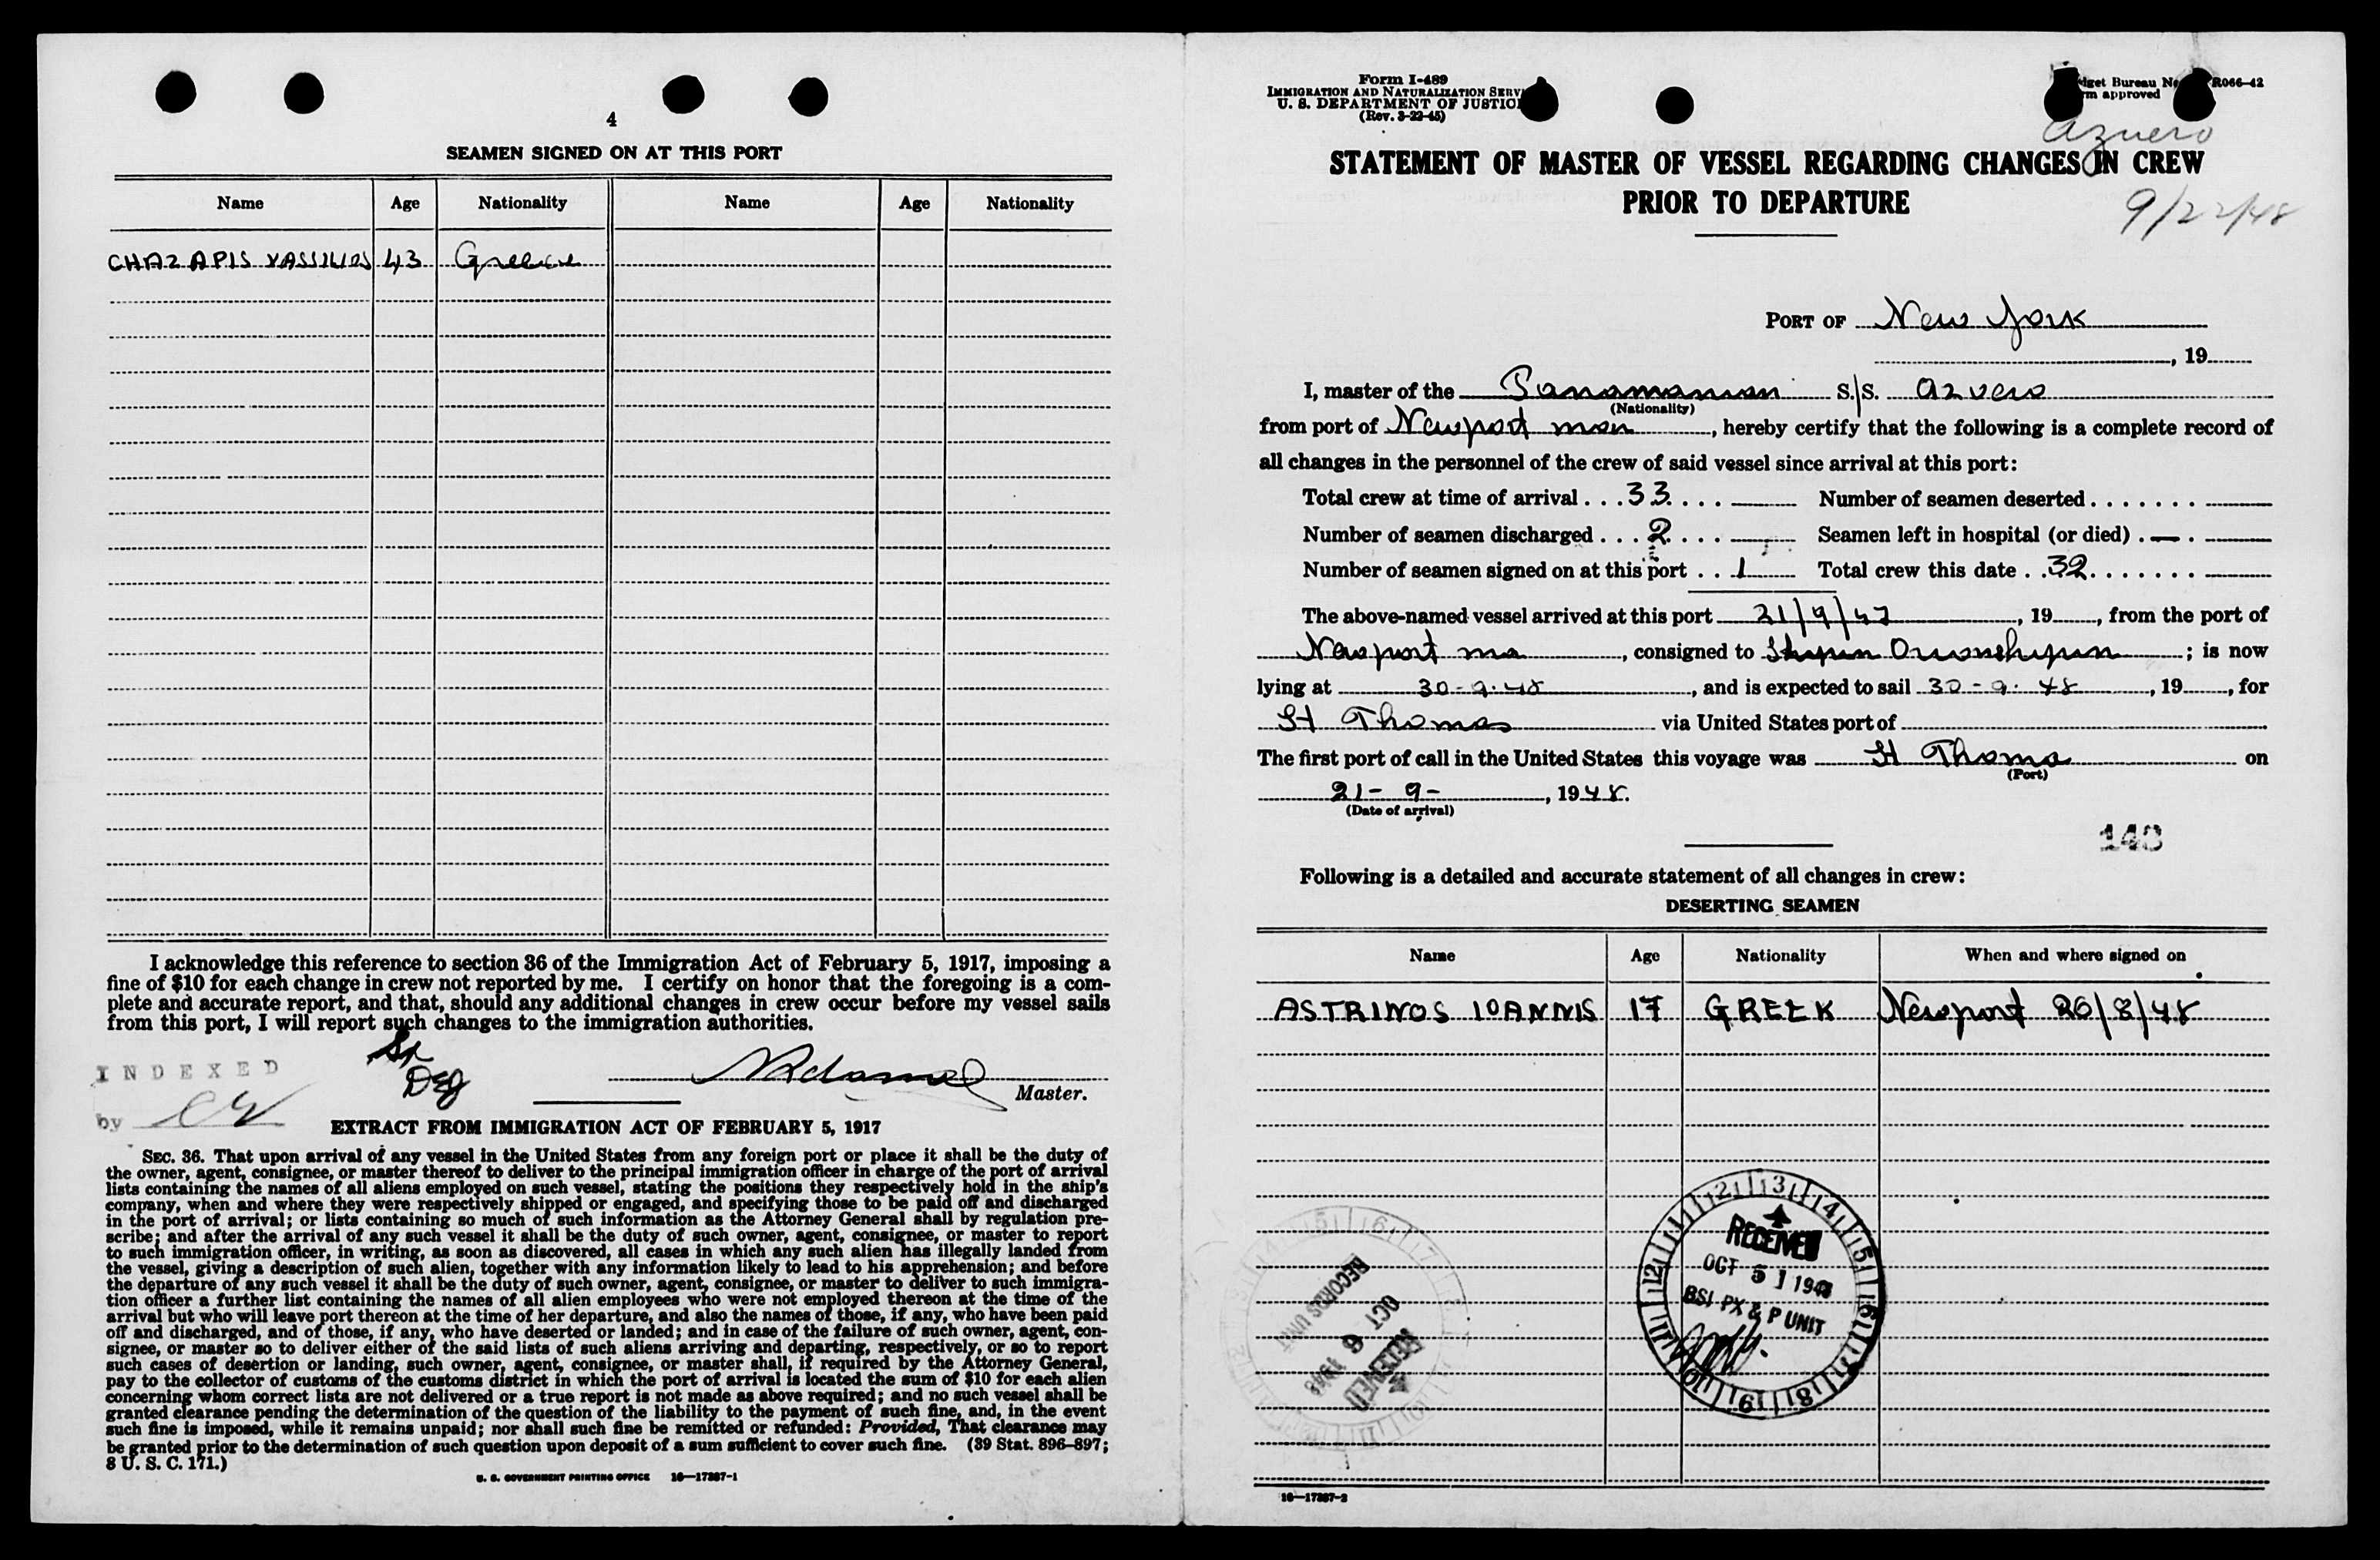 4
SEAMEN SIGNED ON AT THIS PORT
Name Age Nationality Name Age Nationality
CHAZAPIS VASSILIOS 43 Greece
I acknowledge this reference to section 36 of the Immigration Act of February 5, 1917, imposing a
fine of $10 for each change in crew not reported by me. I certify on honor that the foregoing is a com-
plete and accurate report, and that, should any additional changes in crew occur before my vessel sails
from this port, I will report such changes to the immigration authorities.
INDEXED
by
Master.
EXTRACT FROM IMMIGRATION ACT OF FEBRUARY 5, 1917
SEC. 36. That upon arrival of any vessel in the United States from any foreign port or place it shall be the duty of
the owner, agent, consignee, or master thereof to deliver to the principal immigration officer in charge of the port of arrival
lists containing the names of all aliens employed on such vessel, stating the positions they respectively hold in the ship's
company, when and where they were respectively shipped or engaged, and specifying those to be paid off and discharged
in the port of arrival; or lists containing so much of such information as the Attorney General shall by regulation pre-
scribe; and after the arrival of any such vessel it shall be the duty of such owner, agent, consignee, or master to report
to such immigration officer, in writing, as soon as discovered, all cases in which any such alien has illegally landed from
the vessel, giving a description of such alien, together with any information likely to lead to his apprehension; and before
the departure of any such vessel it shall be the duty of such owner, agent, consignee, or master to deliver to such immigra-
tion officer a further list containing the names of all alien employees who were not employed thereon at the time of the
arrival but who will leave port thereon at the time of her departure, and also the names of those, if any, who have been paid
off and discharged, and of those, if any, who have deserted or landed; and in case of the failure of such owner, agent, con-
signee, or master so to deliver either of the said lists of such aliens arriving and departing, respectively, or so to report
such cases of desertion or landing, such owner, agent, consignee, or master shall, if required by the Attorney General,
pay to the collector of customs of the customs district in which the port of arrival is located the sum of $10 for each alien
concerning whom correct lists are not delivered or a true report is not made as above required; and no such vessel shall be
granted clearance pending the determination of the question of the liability to the payment of such fine, and, in the event
such fine is imposed, while it remains unpaid; nor shall such fine be remitted or refunded: Provided, That clearance may
be granted prior to the determination of such question upon deposit of a sum sufficient to cover such fine. (39 Stat. 896–897;
8 U. S. C. 171.)
U. S. GOVERNMENT PRINTING OFFICE 16—17387-1
Form I-489
IMMIGRATION AND NATURALIZATION
U. S. DEPARTMENT OF
(Rev. 3-22-45)
Bureau R066-42
approved
Azuero
STATEMENT OF MASTER OF VESSEL REGARDING CHANGES IN CREW
PRIOR TO DEPARTURE
9/22/48
PORT OF New York
, 19
I, master of the Panamanian S./S. Azuero
(Nationality)
from port of Newport mon, hereby certify that the following is a complete record of
all changes in the personnel of the crew of said vessel since arrival at this port:
Total crew at time of arrival . . . 33 . . . . Number of seamen deserted . . . . . . .
Number of seamen discharged . . . 2 . . . . Seamen left in hospital (or died) . — .
Number of seamen signed on at this port . . 1 Total crew this date . . 32 . . . . . . .
The above-named vessel arrived at this port 21/9/47, 19, from the port of
Newport mo, consigned to; is now
lying at 30-9-48, and is expected to sail 30-9-48, 19, for
St Thomas via United States port of
The first port of call in the United States this voyage was St Thoma on
(Port)
21-9-, 1948.
(Date of arrival)
143
Following is a detailed and accurate statement of all changes in crew:
DESERTING SEAMEN
Name Age Nationality When and where signed on
ASTRINOS IOANNIS 17 GREEK Newport 26/8/48
RECEIVED
OCT 5 1948
BSI PX & P UNIT
RECORDS UNIT
OCT 6 1948
RECEIVED
16—17387-2